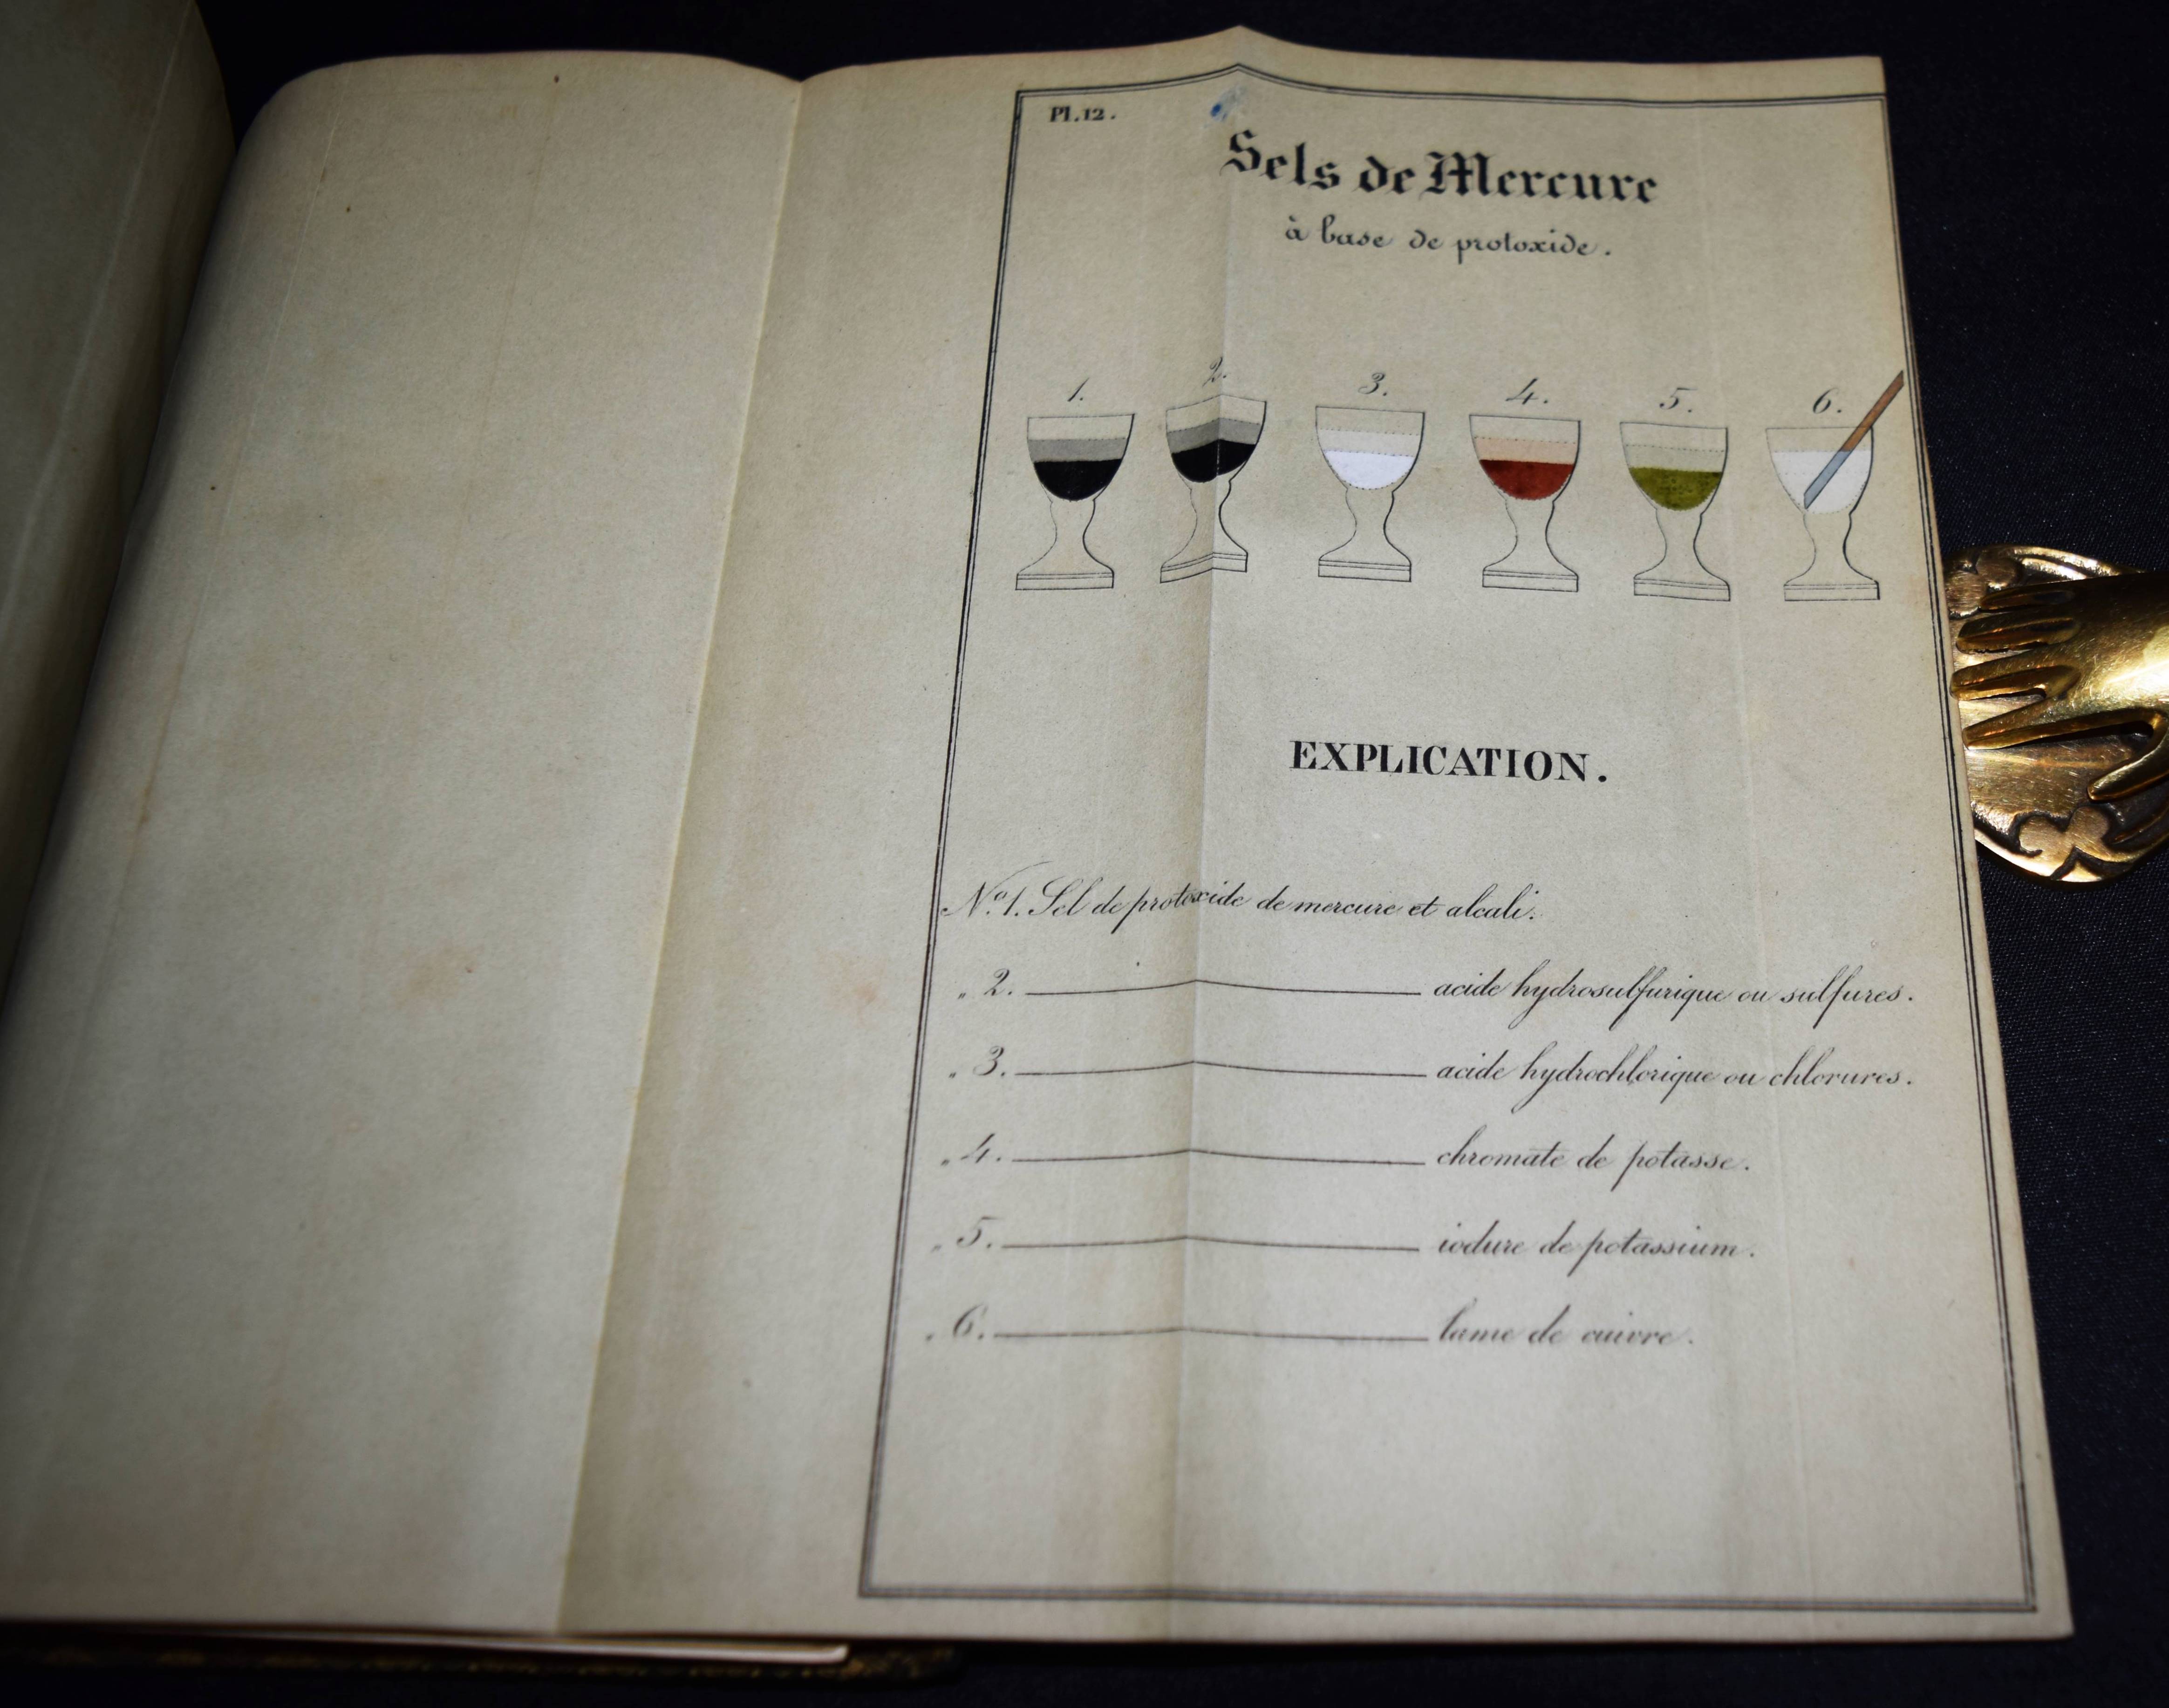 Pl. 12.
Sels de Mercure
à base de protoxide.
1. 2. 3. 4. 5. 6.
EXPLICATION.
N.º 1. Sel de protoxide de mercure et alcali.
„ 2. ——— acide hydrosulfurique ou sulfures.
„ 3. ——— acide hydrochlorique ou chlorures.
„ 4. ——— chromate de potasse.
„ 5. ——— iodure de potassium.
„ 6. ——— lame de cuivre.